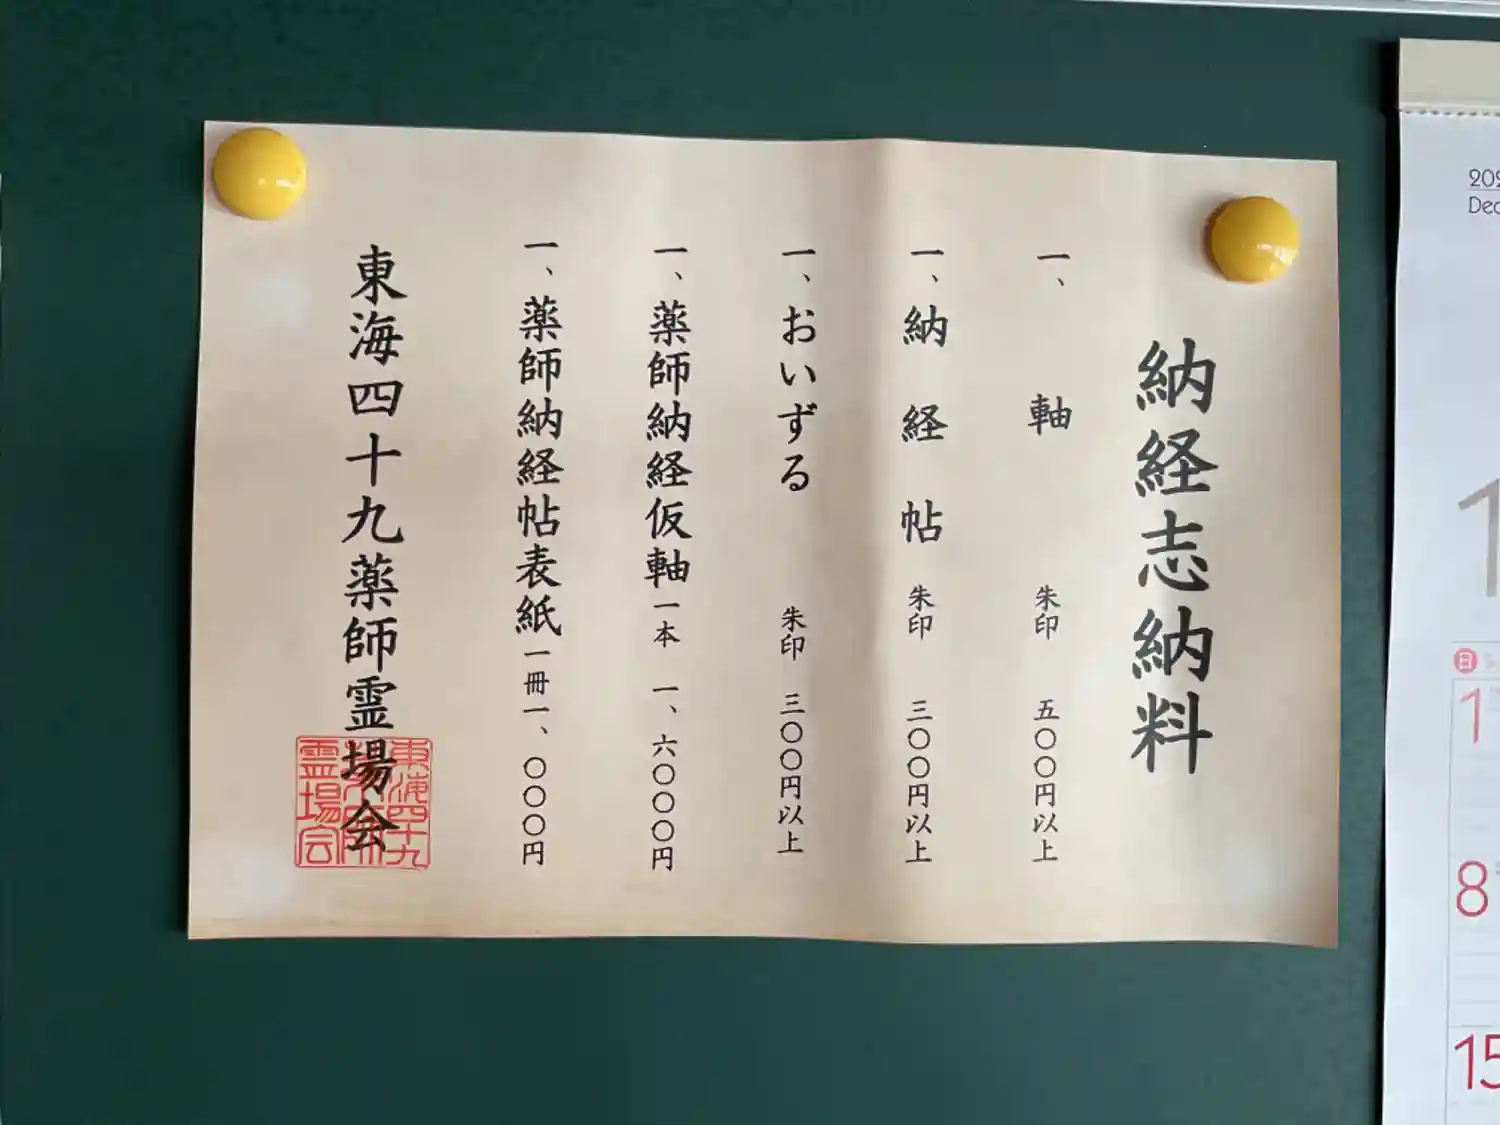 納経志納料
一、軸 朱印 五〇〇円以上
一、納経帖 朱印 三〇〇円以上
一、おいずる 朱印 三〇〇円以上
一、薬師納経仮軸一本 一、六〇〇〇円
一、薬師納経帖表紙一冊一、〇〇〇円
東海四十九薬師霊場会
東海四十九
薬師
霊場会
日
1
8
15